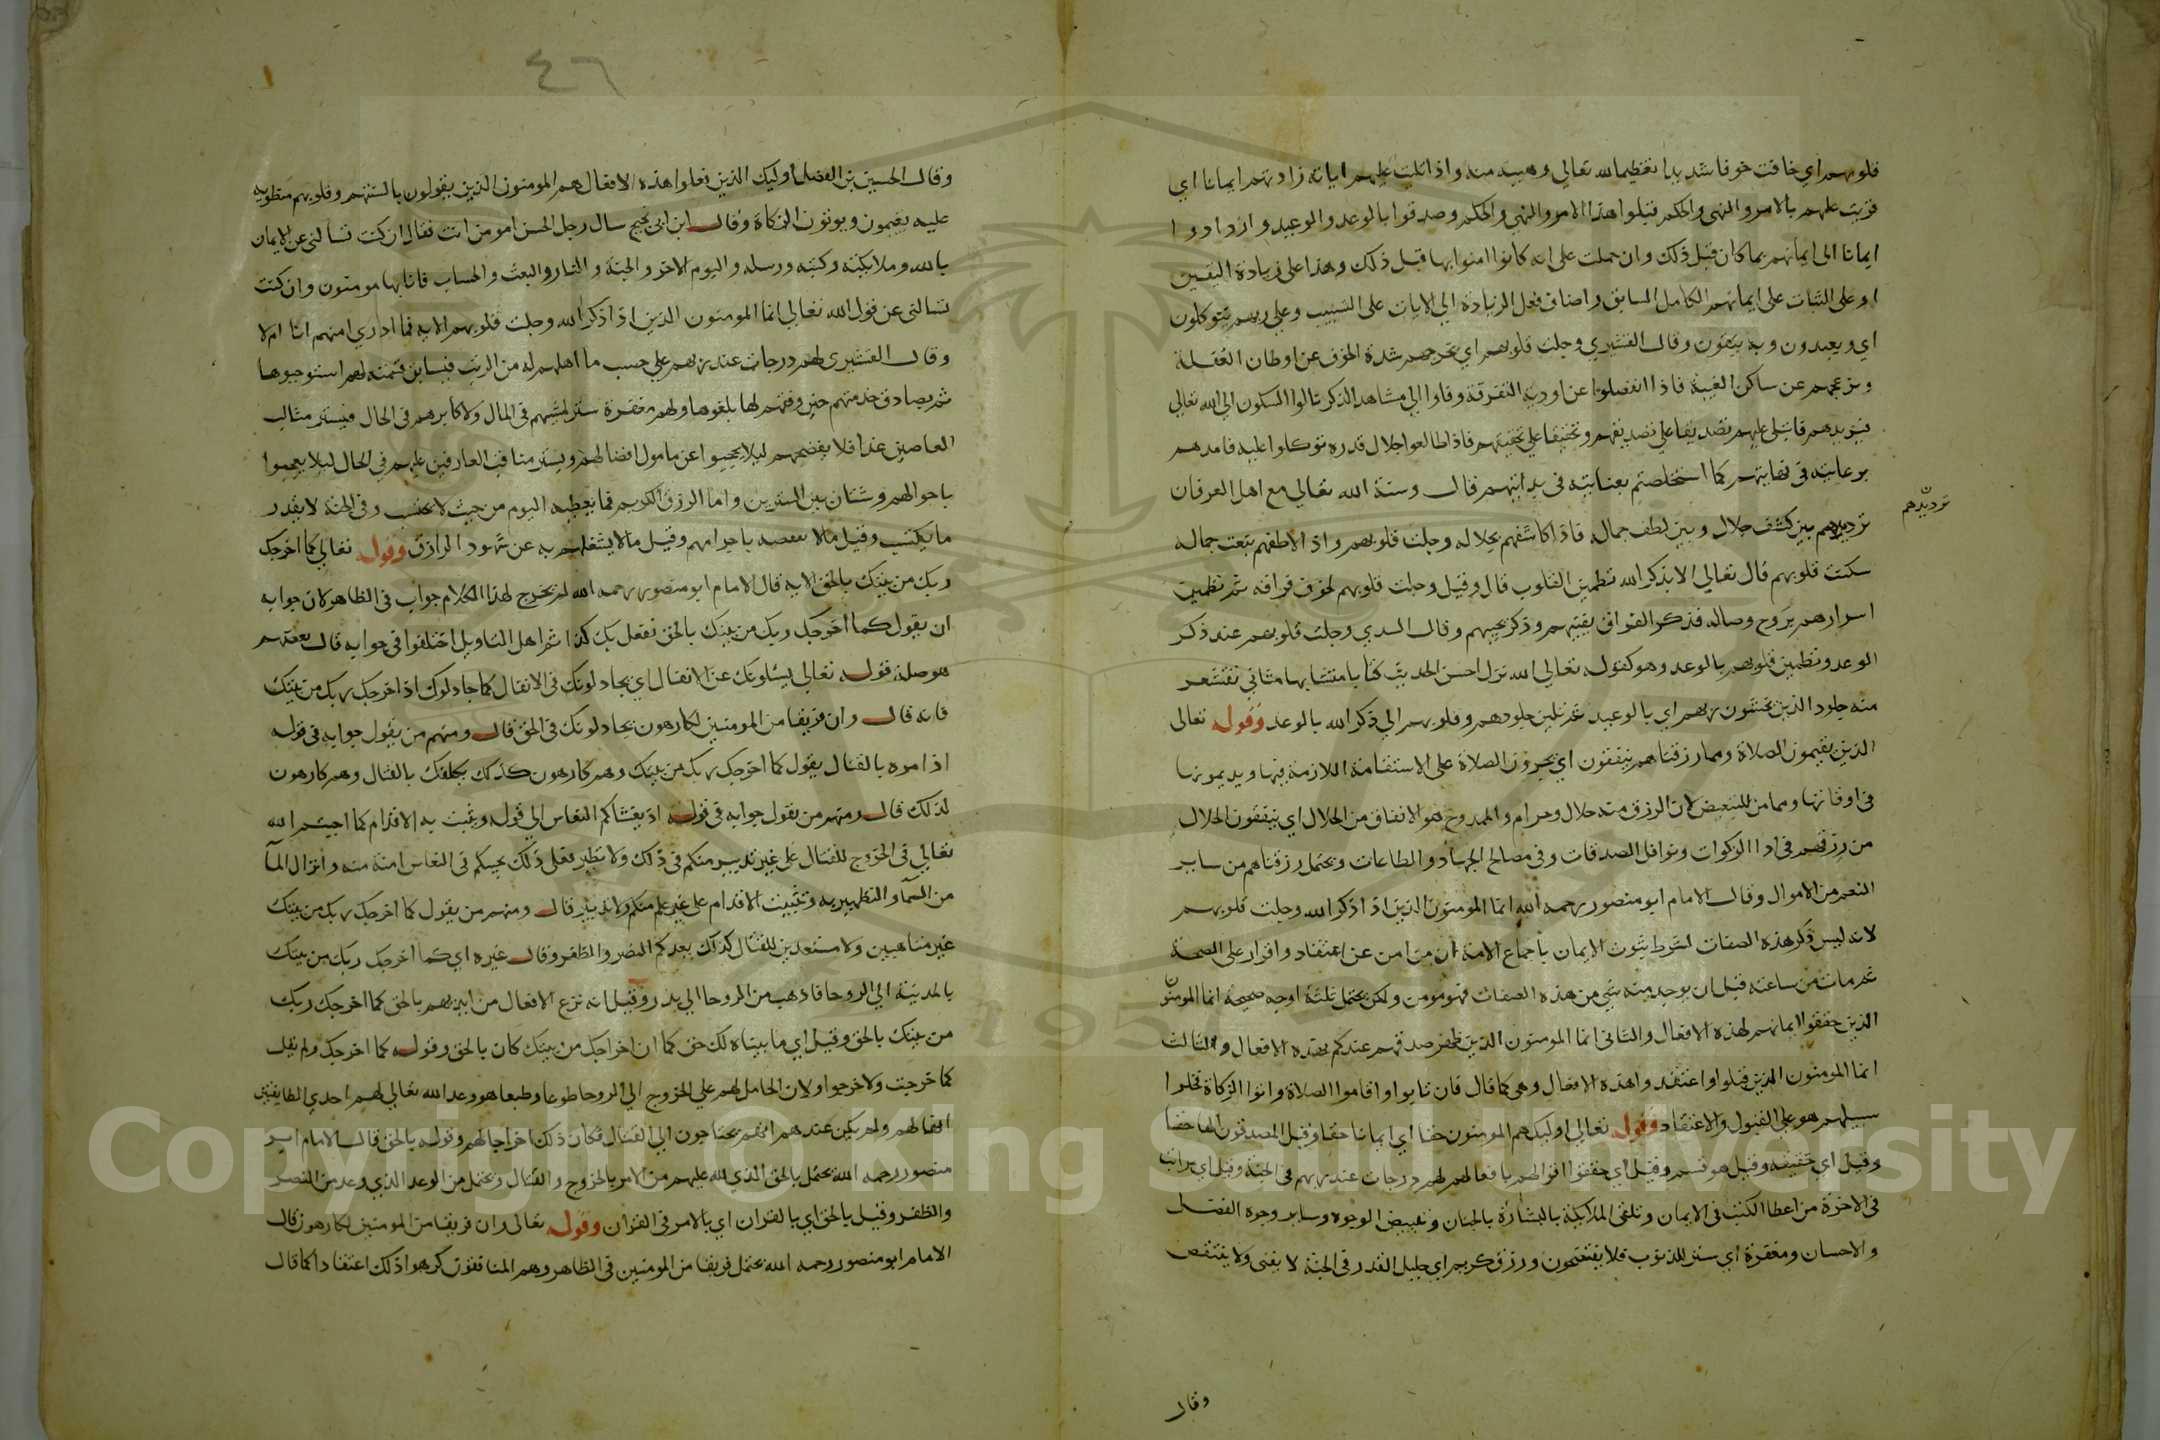 قلوبهم اي خافت خوفا شديدا تعظيما لله تعالي وهيبة منه واذا تليت عليهم اياته زادتهم ايمانا اي
قريت عليهم بالامر والنهي والحكم قبلوا هذا الامر والنهي والحكم وصدقوا بالوعد والوعيد وازدادوا
ايمانا الى ايمانهم بما كان قبل ذلك وان حملت على انه كانوا امنوا بها قبل ذلك وهذا على زيادة اليقين
او على الثبات على ايمانهم الكامل السابق واضاف فعل الزيادة الي الايات على التسبيب وعلي ربهم يتوكلون
اي ويعبدون وبه يثقون وقال القشيري وجلت قلوبهم اي تخرجهم شدة الخوف عن اوطان الغفلة
وتزعجهم عن ساكن الغيبة فاذا انفصلوا عن اودية التفرقة وفاوا الي مشاهد الذكر نالوا السكون الي الله تعالي
فيزيدهم ما يتلى عليهم تصديقا علي تصديقهم وتحقيقا علي تحقيقهم فاذا طالعوا جلال قدره توكلوا عليه فامدهم
برعايته في نهايتهم كما استخلصتم بعنايته في بدايتهم قال وسنة الله تعالي مع اهل العرفان
ترديدهم بين كشف جلال وبين لطف جماله فاذا كاشفهم بجلاله وجلت قلوبهم واذا لاطفهم بنعت جماله
سكنت قلوبهم قال تعالي الا بذكر الله تطمين القلوب قال وقيل وجلت قلوبهم لخوف فراقه ثم تطمين
اسرارهم بروح وصاله فذكر الفراق يفنيهم وذكر يحييهم وقال السدي وجلت قلوبهم عند ذكر
الوعد وتطمين قلوبهم بالوعد وهو كقوله تعالي الله نزل احسن الحديث كتابا متشابها مثاني تقشعر
منه جلود الذين يخشون ربهم اي بالوعيد ثم تلين جلودهم وقلوبهم الي ذكر الله بالوعد وقوله تعالى
الذين يقيمون الصلاة ومما رزقناهم ينفقون اي يجرون الصلاة على الاستقامة اللازمة فيها ويديمونها
في اوقاتها ومما من للتبعيض لان الرزق منه حلال وحرام والممدوح هو الانفاق من الحلال اي ينفقون الحلال
من رزقهم في ادا الزكوات ونوافل الصدقات وفي مصالح الجهاد والطاعات ويحتمل رزقناهم من ساير
النعم من الاموال وقال الامام ابو منصور رحمه الله انما المومنون الذين اذا ذكر الله وجلت قلوبهم
لانه ليس ذكر هذه الصفات لشرط ثبوت الايمان باجماع الامة ان من امن عن اعتقاد واقرار على الصحة
ثم مات من ساعته قبل ان يوجد منه شي من هذه الصفات فهو مومن ولكن يحتمل ثلثة اوجه صحيحة انما المومنون
الذين حققوا ايمانهم لهذه الافعال والثاني انما المومنون الذين ظهر صدقهم عندكم بهذه الافعال والثالث
انما المومنون الذين قبلوا واعتقدوا هذه الافعال وهي كما قال فان تابوا واقاموا الصلاة واتوا الزكاة فخلوا
سبيلهم هو علي القبول والاعتقاد وقوله تعالي اوليك هم المومنون حقا اي ايمانا حقا وقيل المصدقون
وقيل اي حقيقة وقيل هو قسم وقيل اي حققوا اقوالهم بافعالهم لهم درجات عند ربهم في الجنة وقيل اي مراتب
في الاخرة من اعطا الكتب في الايمان وتلقي الملايكة بالبشارة بالجنان وتبييض الوجوه وساير وجوه الفضل
والاحسان ومغفرة اي ستر للذنوب فلا يفتضحون ورزق كريم اي جليل القدر في الجنة لا يفنى ولا ينتقص
ترديدهم
وقال
٤٦
وقال الحسين بن الفضل اوليك الذين فعلوا هذه الافعال هم المومنون الذين يقولون بالسنتهم وقلوبهم منطوية
عليه يقيمون ويوتون الزكاة وقال ابن ابي نجيح سال رجل الحسن امومن انت فقال ان كنت تسالني عن الايمان
بالله وملايكته وكتبه ورسله واليوم الاخر والجنة والنار والبعث والحساب فانا بها مومنون وان كنت
تسالني عن قول الله تعالي انما المومنون الذين اذا ذكر الله وجلت قلوبهم الاية فما ادري امنهم انا ام لا
وقال القشيري لهم درجات عند ربهم علي حسب ما اهلهم له من الرتب فبسابق قسمته لهم استوجبوها
ثم بصادق خدمتهم حين وفقهم لها بلغوها ولهم مغفرة ستر لمثيبهم في المال ولاكابرهم في الحال فيستر مثالب
العاصين غدا فلا يفضحهم ليلا يحجبوا عن مامول افضالهم ويستر مناقب العارفين عليهم في الحال ليلا يعجبوا
باحوالهم وشتان بين السترين واما الرزق الكريم فما يعطيه اليوم من حيث لا يحتسب وفي الجنة لا يقدر
ما يكتسب وقيل ما لا ينقصه باجرامهم وقيل ما لا يشغلهم به عن شهود الرازق وقوله تعالي كما اخرجك
ربك من بيتك بالحق الاية قال الامام ابو منصور رحمه الله لم يخرج لهذا الكلام جواب في الظاهر لان جوابه
ان يقول كما اخرجك ربك من بيتك بالحق نفعل بك كذا ثم اهل التاويل اختلفوا في جوابه قال بعضهم
هو صلة قوله تعالي يسئلونك عن الانفال اي يجادلونك في الانفال كما جادلوك اذ اخرجك ربك من بيتك
فانه قال وان فريقا من المومنين لكارهون يجادلونك في الحق قال ومنهم من يقول جوابه في قوله
اذا مره بالقتال يقول كما اخرجك ربك من بيتك وهم كارهون كذلك يكلفك بالقتال وهم كارهون
لذلك قال ومنهم من يقول جوابه في قوله اذ يغشاكم النعاس الي قوله ويثبت به الاقدام كما اجيتم الله
تعالي في الخروج للقتال علي غير تدبير منكم في ذلك ولا نظير فعلي ذلك يحييكم في النعاس امنة منه وانزال الما
من السما والتطهير به وتثبيت الاقدام على غير علم منكم ولا تدبير قال ومنهم من يقول كما اخرجك ربك من بيتك
غير متاهبين ولا مستعدين للقتال كذلك يعدكم النصر والظفر وقال غيره اي كما اخرجك ربك من بيتك
بالمدينة الي الروحا فاذهب من الروحا الي بدر وقيل انه نزع الافعال من ايديهم بالحق كما اخرجك ربك
من بيتك بالحق وقيل اي ما بيناه لك حق كما ان اخراجك من بيتك كان بالحق وقوله كما اخرجك ولم يقل
كما خرجت ولا خرجوا ولان الحامل لهم علي الخروج الي الروحا طوعا وطبعا هو وعد الله تعالي لهم احدي الطايفتين
انها لهم ولم يكن عندهم انهم يحتاجون الي القتال فكان ذلك اخراجا لهم وقوله بالحق قال الامام ابو
منصور رحمه الله يحتمل بالحق الذي لله عليهم من الامر بالخروج والقتال ويحتمل من الوعد الذي وعد من النصر
والظفر وقيل بالحق اي بالقران اي بالامر في القران وقوله تعالى وان فريقا من المومنين لكارهون قال
الامام ابو منصور رحمه الله يحتمل فريقا من المومنين في الظاهر وهم المنافقون كرهوا ذلك اعتقادا كما قال
Copyright © King Saud University
1957